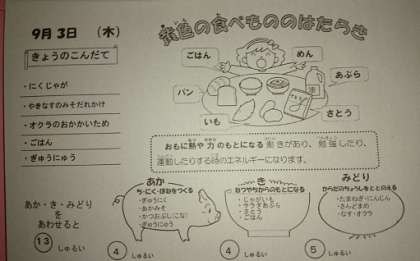 9月3日 (木)
黄色の食べもののはたらき
きょうのこんだて
・にくじゃが
・やきなすのみそだれかけ
・オクラのおかかいため
・ごはん
・ぎゅうにゅう
ごはん
めん
パン
あぶら
いも
さとう
おもに熱や力のもとになる働きがあり、勉強したり、
運動したりする時のエネルギーになります。
あか・き・みどり
を
あわせると
13 しゅるい
あか
ち・にく・ほねをつくる
・ぎゅうにく
・あかみそ
・かつおぶし(こな)
・ぎゅうにゅう
4 しゅるい
き
ねつやちからのもとになる
・じゃがいも
・サラダあぶら
・さとう
・ごはん
4 しゅるい
みどり
からだのちょうしをととのえる
・たまねぎ・にんじん
・さんどまめ
・なす・オクラ
5 しゅるい